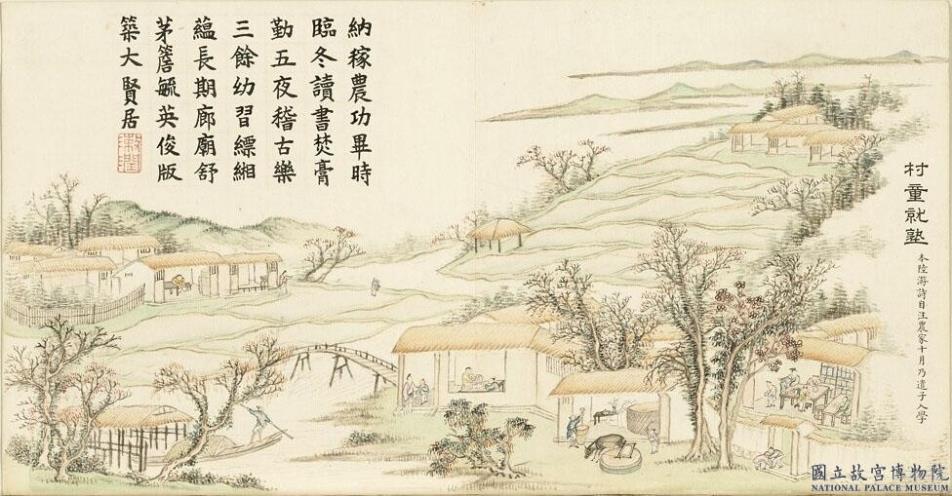 村童就塾
本陸游詩自注農家十月乃遣子入學
納稼農功畢時
臨冬讀書焚膏
勤五夜稽古樂
三餘幼習縹緗
蘊長期廊廟舒
茅簷毓英俊版
築大賢居
國立故宮博物院
NATIONAL PALACE MUSEUM